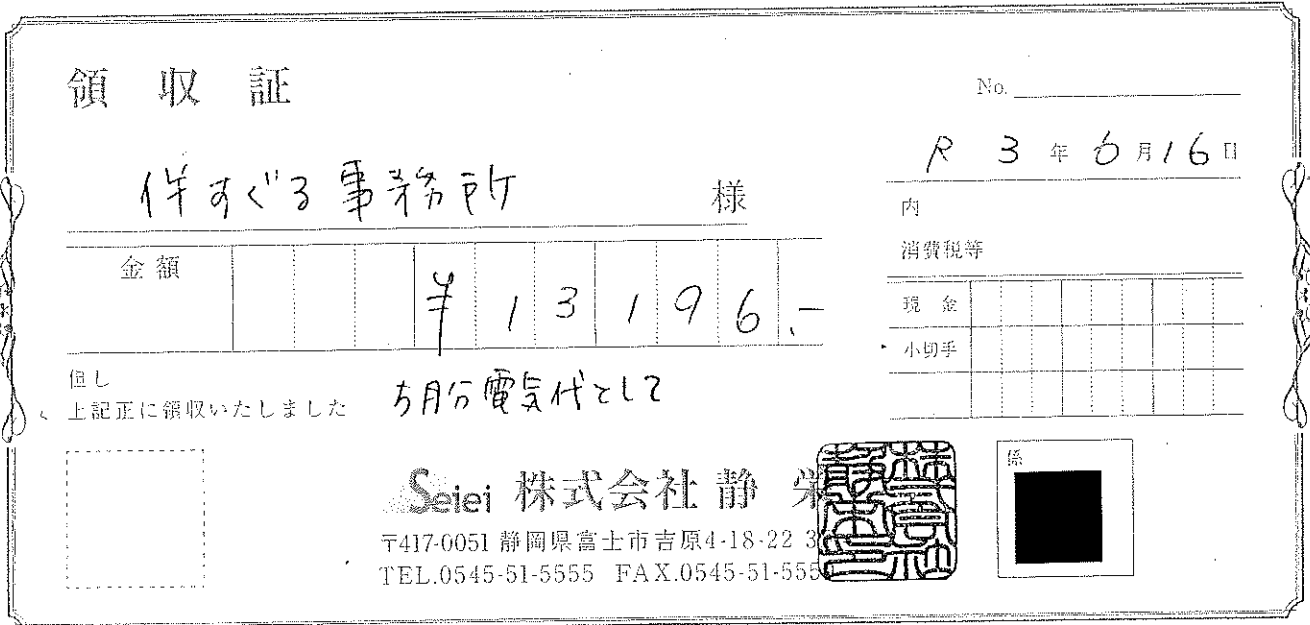 領収証
No.
R 3 年 6 月 16 日
伴すぐる事務所 様
内
消費税等
金額 ¥13196.-
現金
小切手
但し 5月分電気代として
上記正に領収いたしました
係
Seiei 株式会社 静 栄
〒417-0051 静岡県富士市吉原4-18-22
TEL.0545-51-5555 FAX.0545-51-555